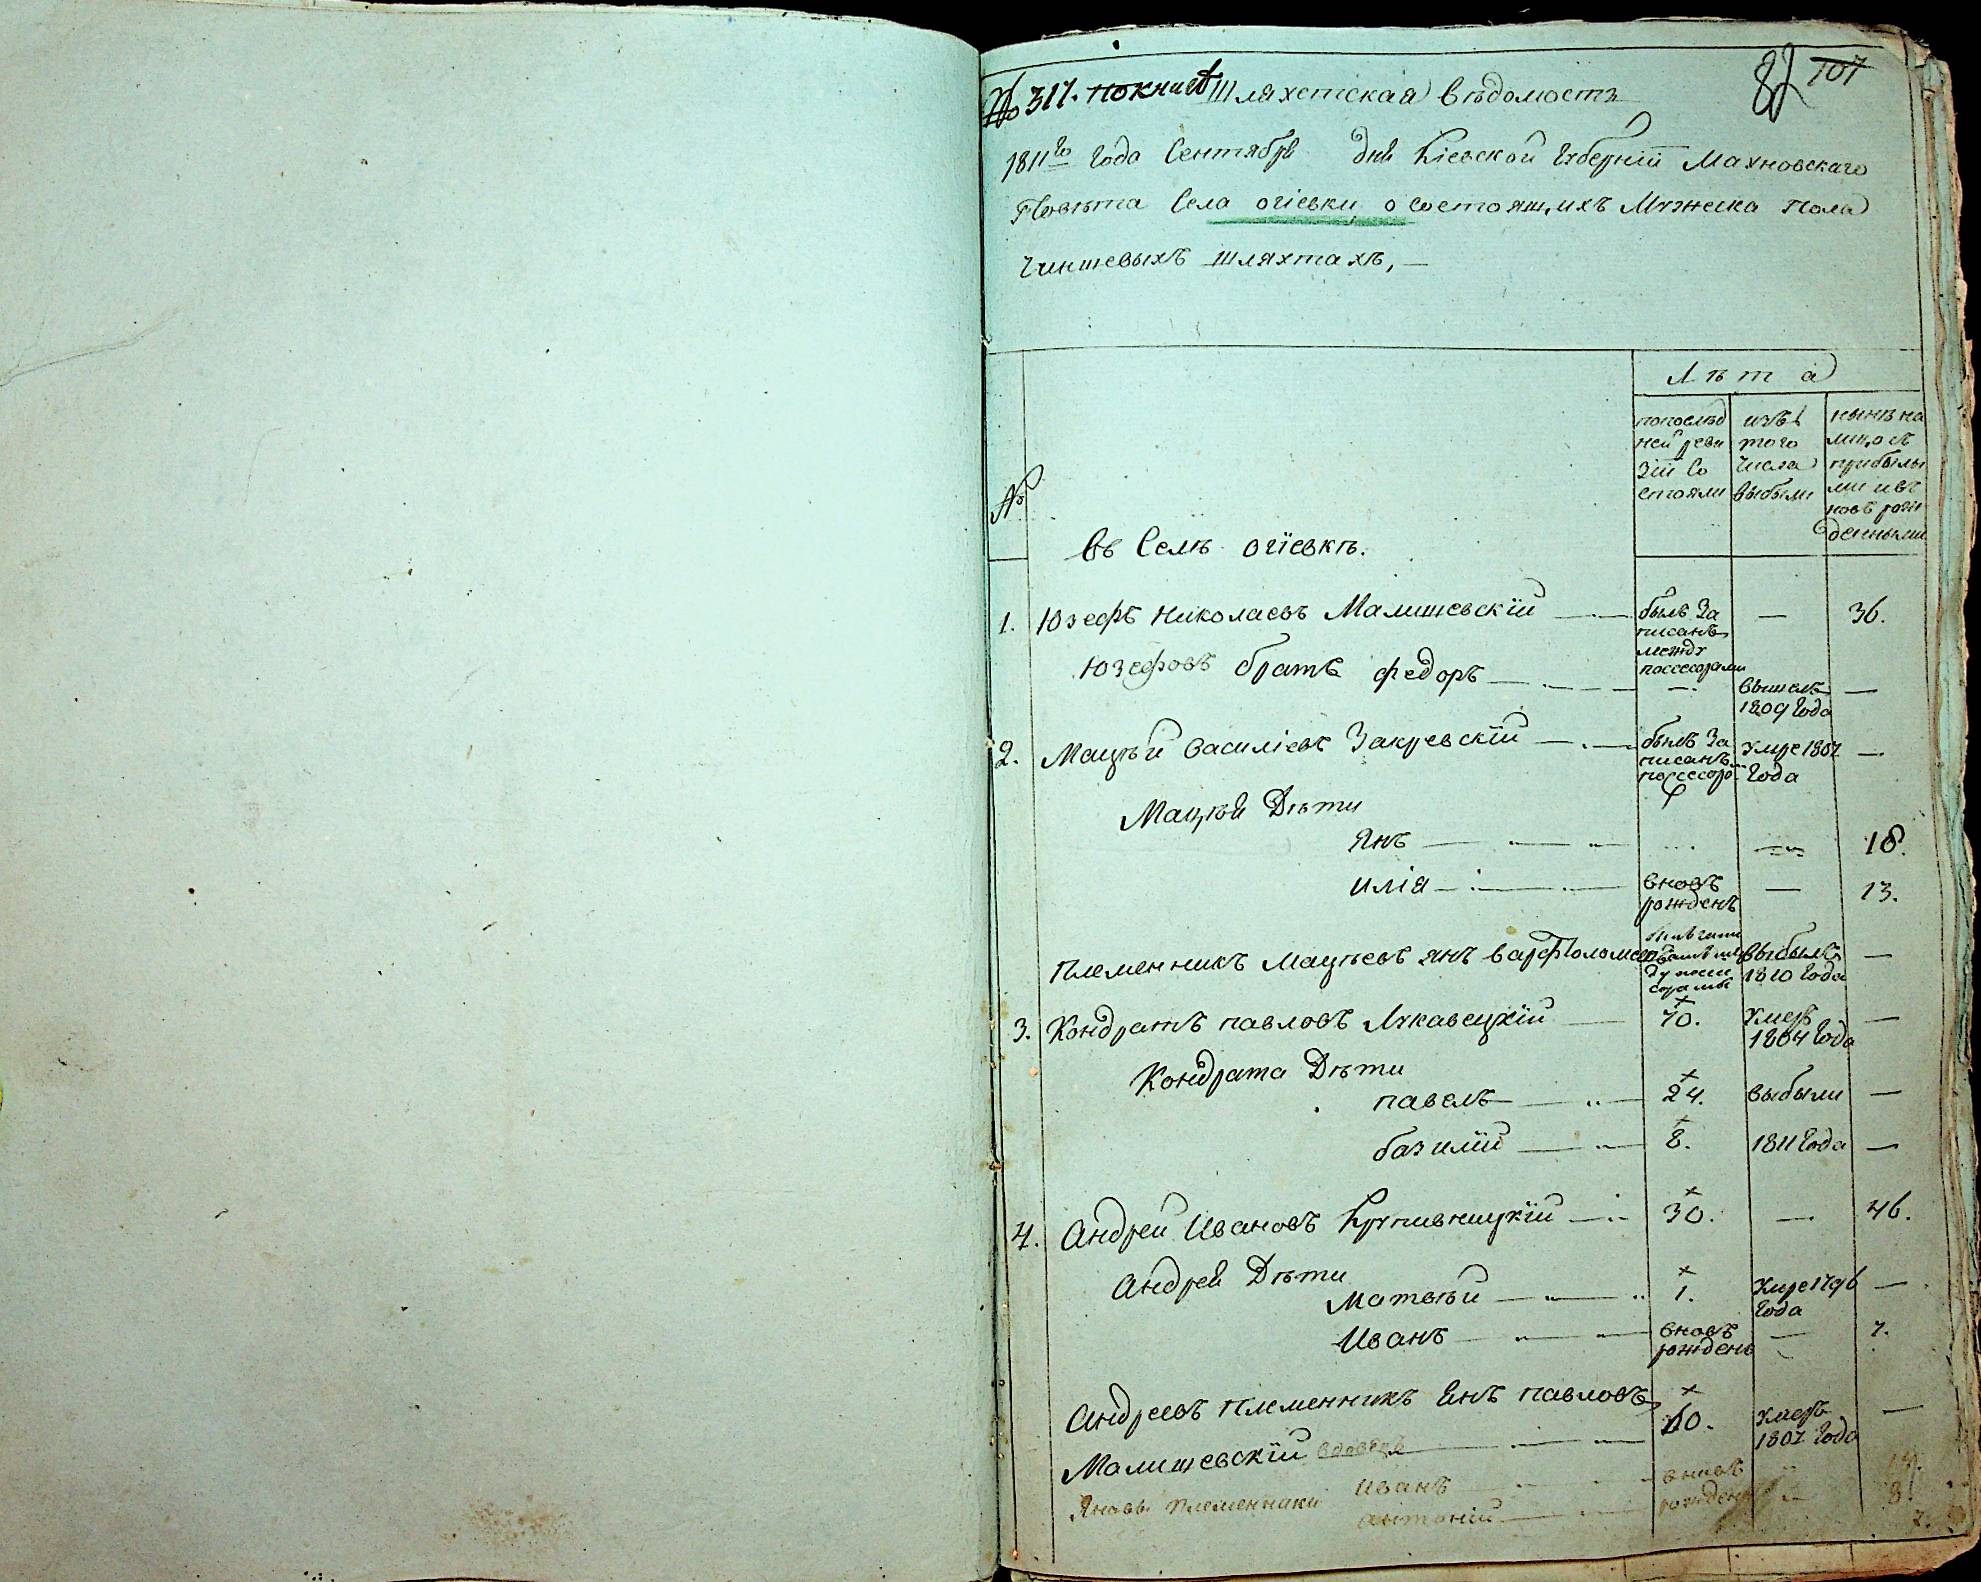 № 317. по книге Шляхетская вѣдомость 82 107
1811го года Сентября дня Кіевской Губерніи Махновскаго
Повѣта Села огіевки о состоящихъ Мужеска пола
Чиншевыхъ шляхтахъ,
Лѣта
№
по послѣд
ней реви
зіи Со
стояли
изъ
того
числа
выбыли
нынѣ на
лицо съ
прибылы
ми и въ
новь рож
денными
Въ Селѣ огіевкѣ.
1. Юзефъ Николаевъ Малишевскій былъ За — 36.
писанъ
между
поссесорами
Юзефовъ братъ федоръ — вышелъ —
1809 Года
2. Мацѣй василіевъ Закревскій былъ За умре 1807 —
писанъ Года
поссесоро
Мацѣя Дѣти
янъ 18.
иліа вновъ — 13.
рожденъ
Племенникъ Мацѣевъ янъ варфоломеевъ выбылъ —
1810 Года
3. Кондратъ павловъ Лукавецкій 70. умеръ —
1804 Года
Кондрата Дѣти
павелъ 24. выбыли —
базилій 8. 1811 Года —
4. Андрей Ивановъ Крупивницкій 30. — 46.
Андрея Дѣти
Матвѣй 1. умре 1796 —
Года
Иванъ вновъ — 7.
рожденъ
Андреевъ племенникъ Янъ павловъ
Малишевскій 60. умеръ —
1807 Года
Яновы племенники Иванъ вновъ
антоній рожден 8.